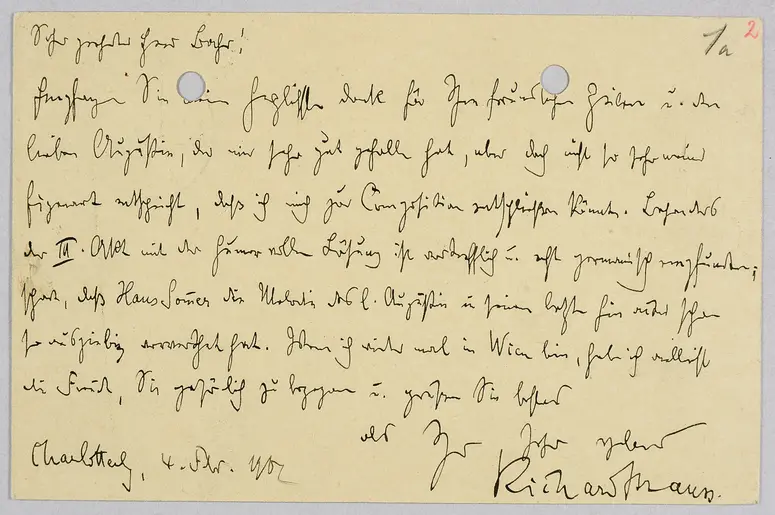 1a 2
Sehr geehrter Herr Bahr!
Empfangen Sie meinen herzlichsten Dank für Ihre freundlichen Zeilen u. den
lieben Augustin, der mir sehr gut gefallen hat, aber doch nicht so sehr meiner
Eigenart entspricht, daß ich mich zur Composition entschließen könnte. Besonders
der III. Akt mit der humorvollen Lösung ist vortrefflich u. echt germanisch empfunden;
schade, daß Hans Sommer die Melodie des l. Augustin in seinem letzten Einakter schon
so ausgiebig verwertet hat. Wenn ich wieder mal in Wien bin, habe ich vielleicht
die Freude, Sie persönlich zu begegnen u. grüßen Sie bestens
als Ihr sehr ergebener
Charlottenbg, 4. Febr. 1902
Richard Strauss.